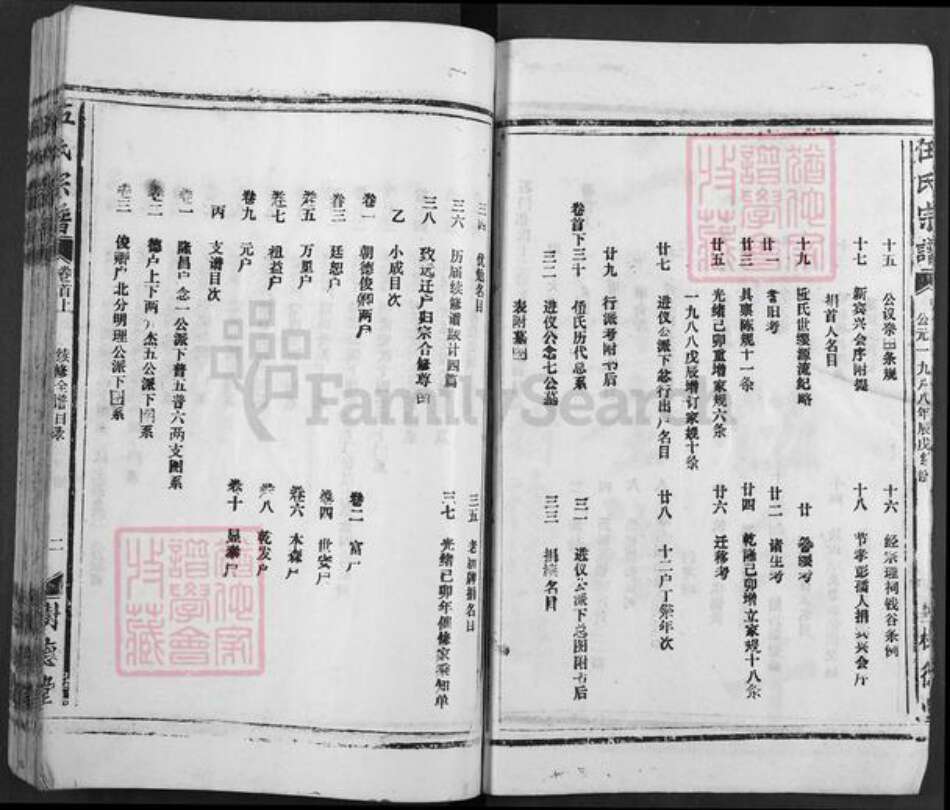 伍氏宗谱
公元一九八八年辰戊
十五 公议祭田条规
十六 经宗理祠钱谷条例
十七 新宾兴会序附规
十八 节孝彭孺人捐宾兴会斤
捐首人名目
十九 伍氏世缀源流纪略
廿 祭缀考
廿一 耆旧考
廿二 诸生考
廿三 具禀陈规十一条
廿四 乾隆己卯增立家规十八条
廿五 光绪己卯重增家规六条
廿六 迁移考
一九八八戊辰增订家规十条
廿七 进仪公派下忿行出户名目
廿八 十二户丁粮年次
廿九 行派考附书后
卷首下三十 伍氏历代总系
三一 进仪公派下总图附书后
三二 进仪公念七公墓
三三 捐输名目
表附墓图
优免名目
三五 老祖牌捐名目
三六 历届续修谱跋计四篇
三七 光绪己卯年催修家乘知单
三八 致远迁户归宗合修尊函
乙 小成目次
卷一 朝德俊卿两户
卷二 富户
卷三 廷恕户
卷四 世安户
卷五 万里户
卷六 本森户
卷七 祖益户
卷八 乾发户
卷九 元户
卷十 显泰户
丙 支谱目次
卷一 隆昌户念一公派下普五普六两支图系
卷二 德户上下两户杰五公派下图系
卷三 俊卿户北分明理公派下图系
伍氏宗谱
卷首上
续修全谱目录
二
树德堂
FamilySearch
犹他家谱学会收藏
犹他家谱学会收藏